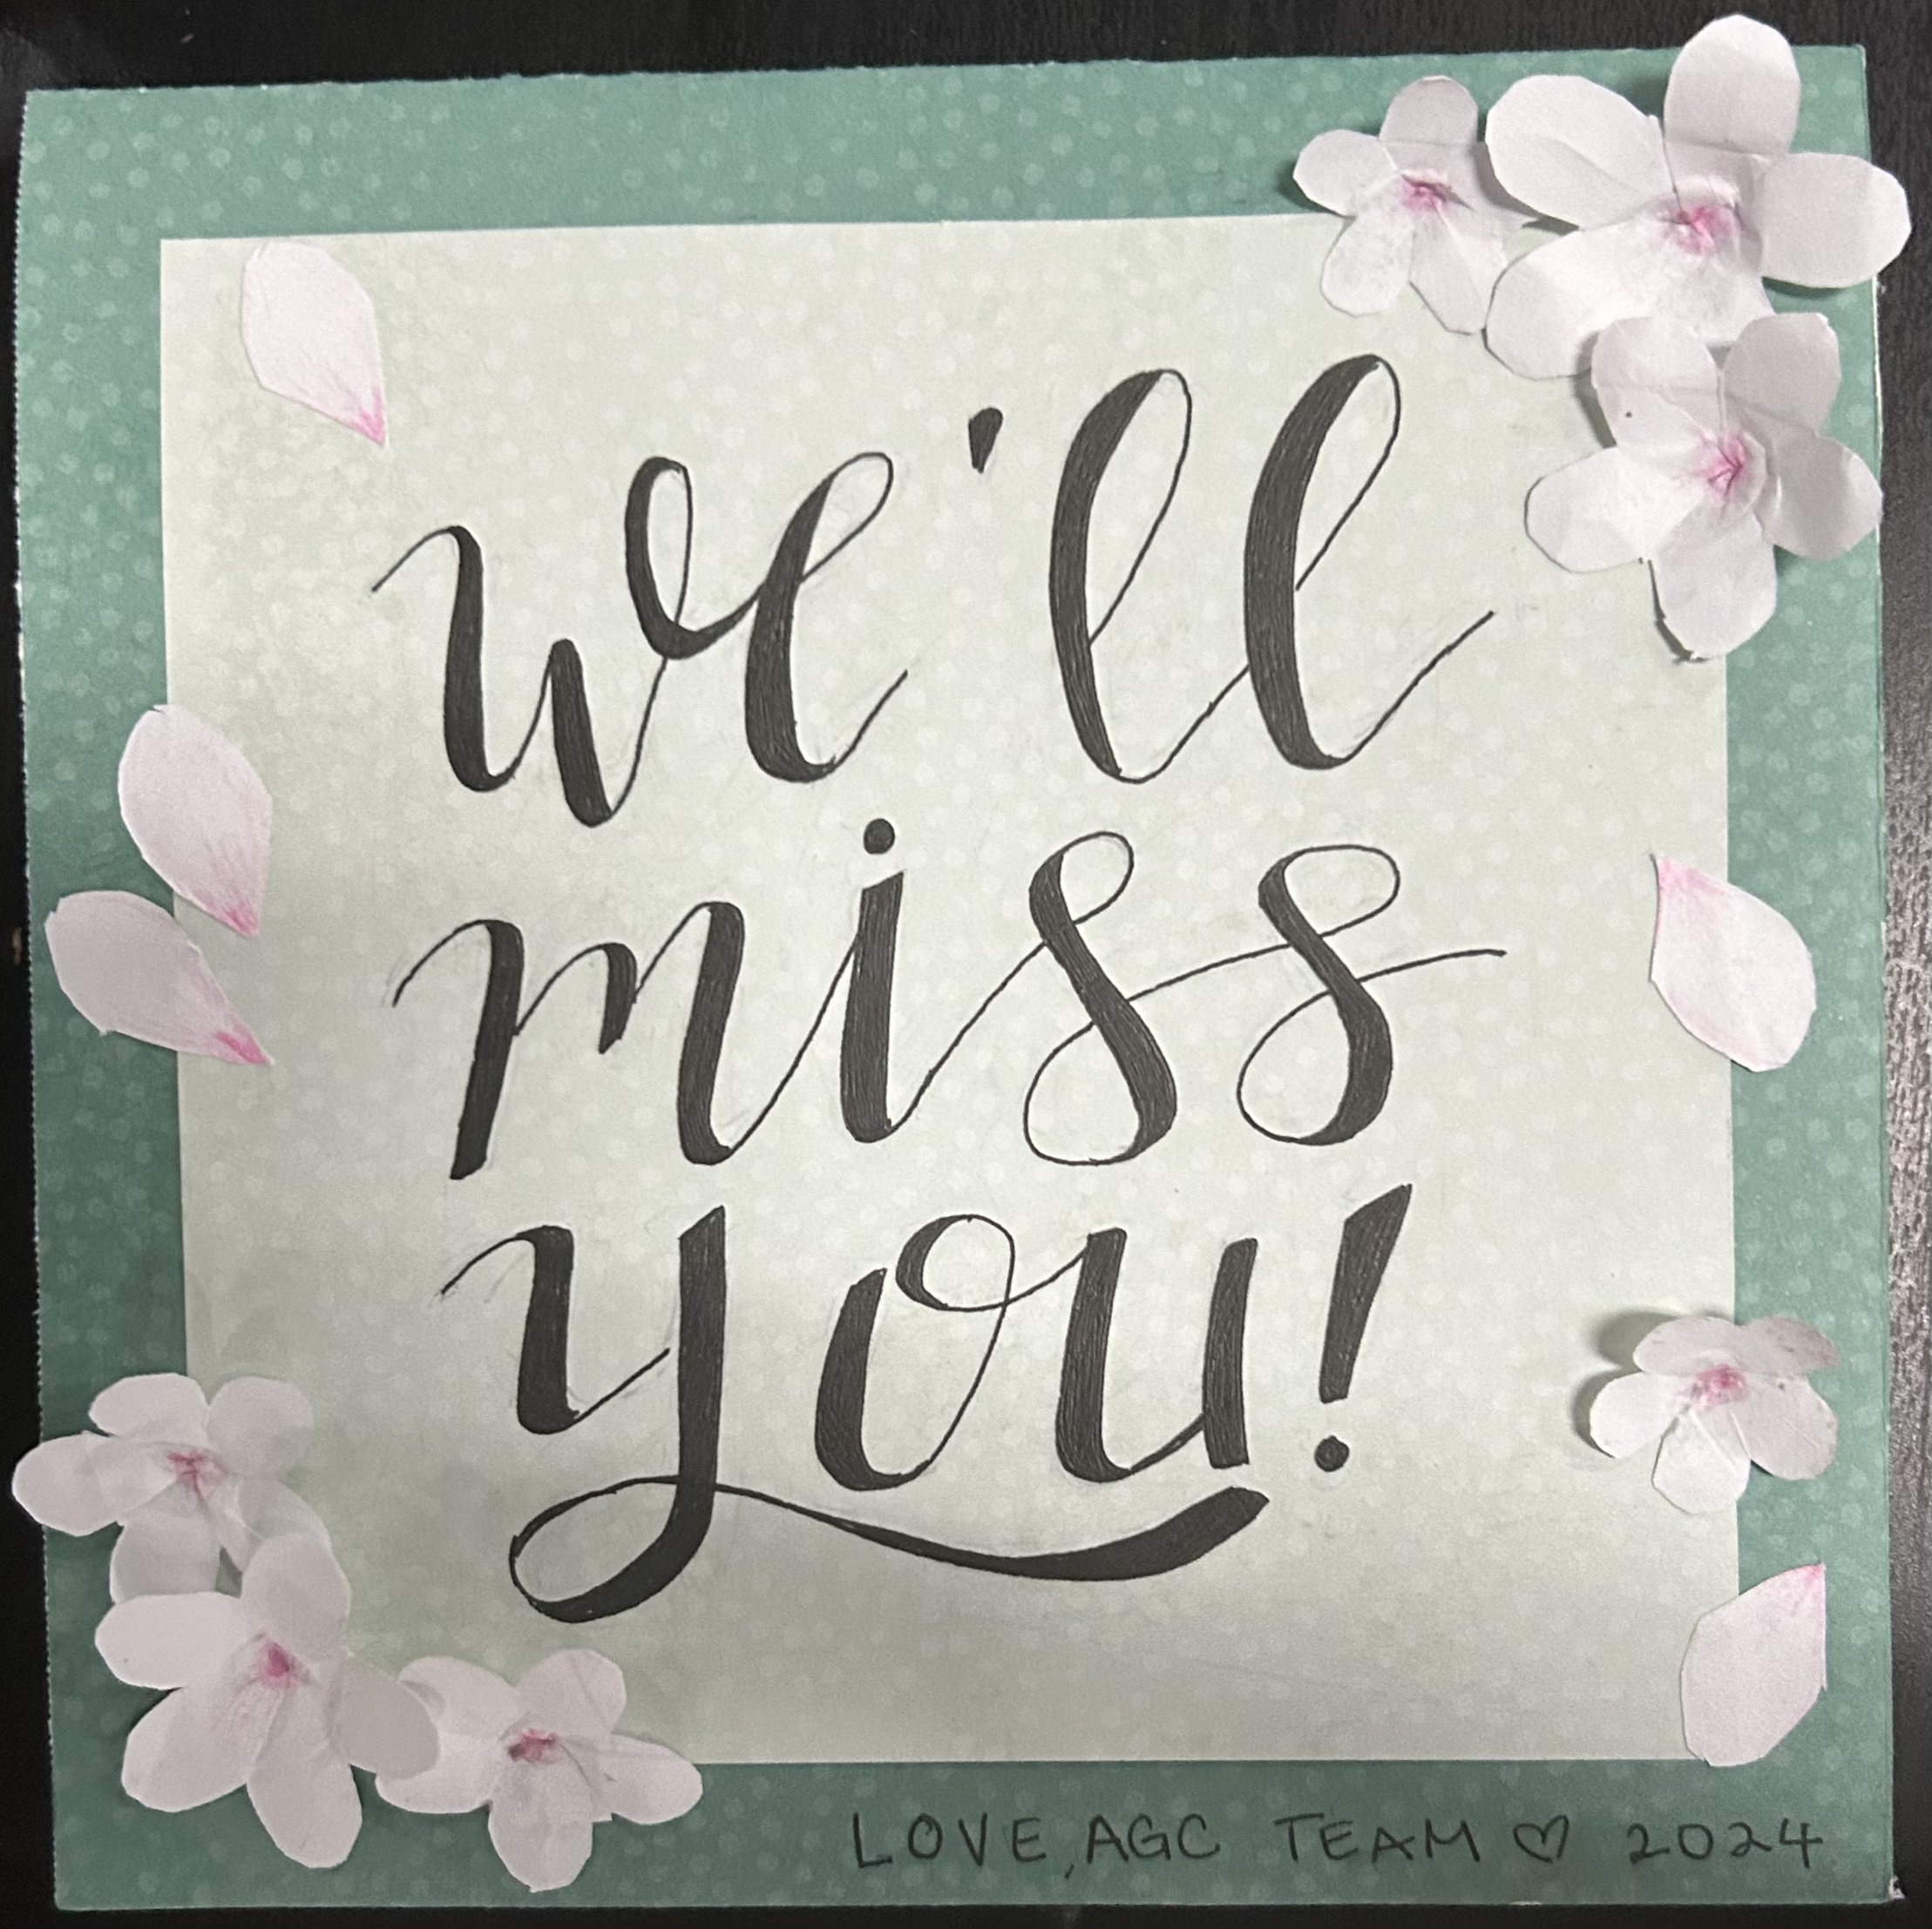 we'll
miss
you!
LOVE, AGC TEAM ♡ 2024